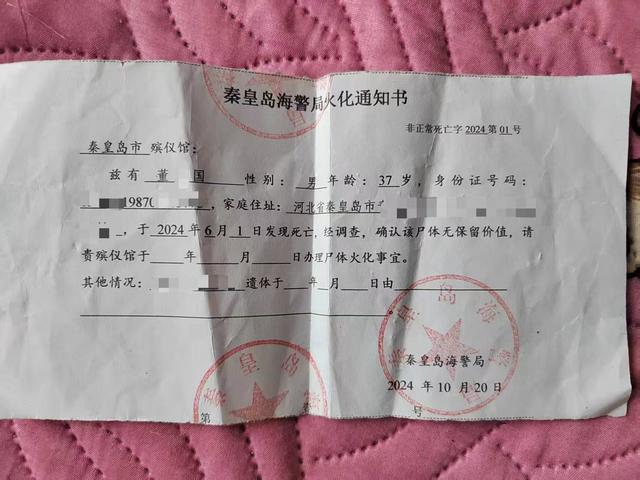 秦皇岛海警局火化通知书
非正常死亡字 2024 第 01 号
秦皇岛市 殡仪馆：
兹有 董 国 性别： 男 年龄： 37 岁，身份证号码：
19870 ，家庭住址： 河北省秦皇岛市
，于 2024 年 6 月 1 日发现死亡，经调查，确认该尸体无保留价值，请
贵殡仪馆于 年 月 日办理尸体火化事宜。
其他情况： 遗体于 年 月 日由
秦皇岛海警局
2024 年 10 月 20 日
第 号
秦皇岛
秦皇岛海警